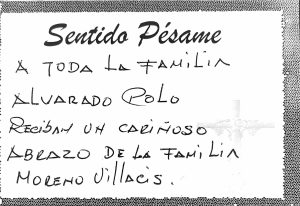 Sentido Pésame
A TODA LA FAMILIA
ALVARADO POLO
RECIBAN UN CARIÑOSO
ABRAZO DE LA FAMILIA
MORENO VILLACIS.